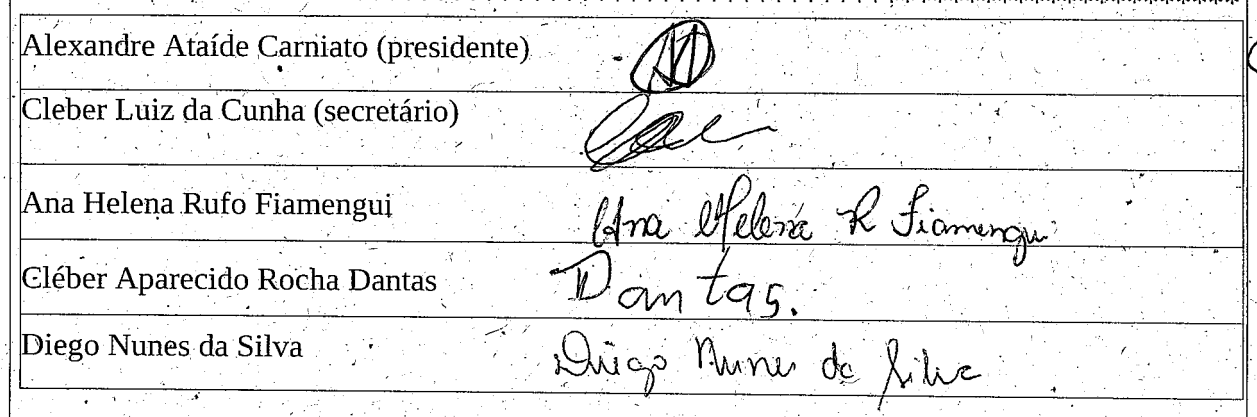 Alexandre Ataíde Carniato (presidente)
Cleber Luiz da Cunha (secretário)
Ana Helena Rufo Fiamengui Ana Helena R Fiamengui
Cléber Aparecido Rocha Dantas Dantas.
Diego Nunes da Silva Diego Nunes da Silva